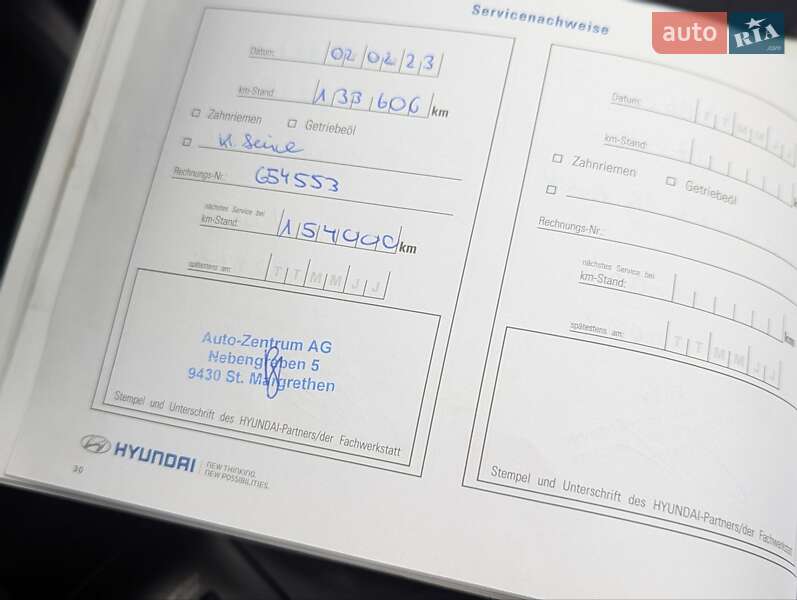 Servicenachweise
auto RIA .com
Datum: 02 02 23
km-Stand: 133 606 km
Zahnriemen Getriebeöl
Rechnungs-Nr.: 654553
nächstes Service bei
km-Stand: 154000 km
spätestens am: T T M M J J
Auto-Zentrum AG
Nebengraben 5
9430 St. Margrethen
Stempel und Unterschrift des HYUNDAI-Partners/der Fachwerkstatt
HYUNDAI NEW THINKING.
NEW POSSIBILITIES.
30
Datum: T T M M J J
km-Stand:
Zahnriemen Getriebeöl
Rechnungs-Nr.:
nächstes Service bei
km-Stand: km
spätestens am: T T M M J J
Stempel und Unterschrift des HYUNDAI-Partners/der Fachwerkstatt